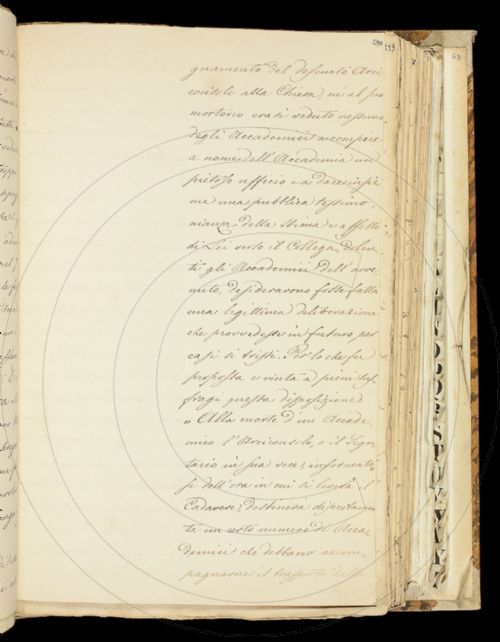 280 299
gnamento del defunto Arci
consolo alla Chiesa, nè al suo
mortorio erasi veduto nessuno
degli Accademici a compiere
a nome dell'Accademia un
pietoso ufficio e a dare insie
me una pubblica testimo-
nianza della stima e affetto
di Lei verso il Collega. Dolen
ti gli Accademici dell'avve
nuto, desiderarono fosse fatta
una legittima deliberazione
che provvedesse in futuro per
casi sì tristi. Per lo che fu
proposta e vinta a pieni suf
fragi questa disposizione:
" Alla morte d'un Accade-
mico l'Arciconsolo, o il Segre
tario in sua vece, informato
si dell'ora in cui si leverà il
Cadavere, destinerà
te un certo numero di Acca-
demici che debbano accom-
pagnarne il trasporto